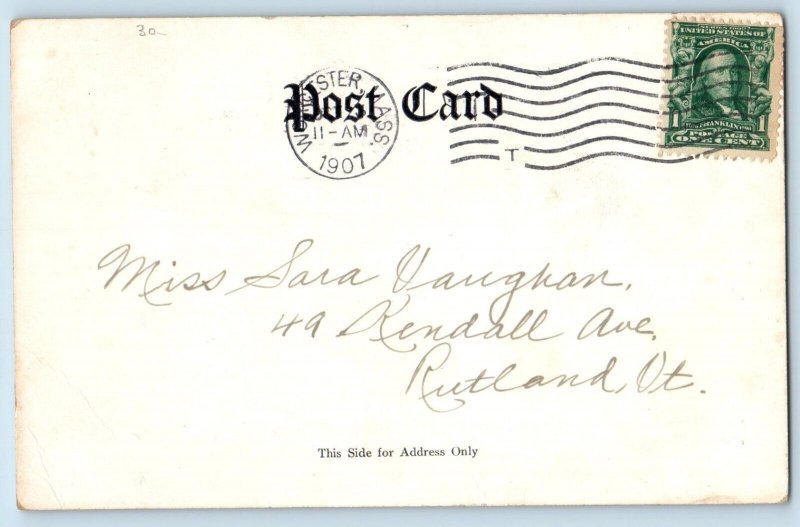 30
Post Card
WORCESTER, MASS.
11-AM
1907
T
SERIES 1902
UNITED STATES OF
AMERICA
1 FRANKLIN 1
POSTAGE
ONE CENT
Miss Sara Vaughan,
49 Kendall Ave.
Rutland, Vt.
This Side for Address Only